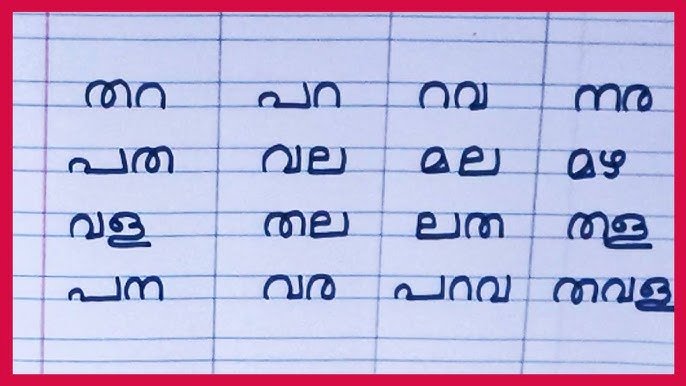 തറ പറ റവ നര
പത വല മല മഴ
വള തല ലത തള
പന വര പറവ തവള